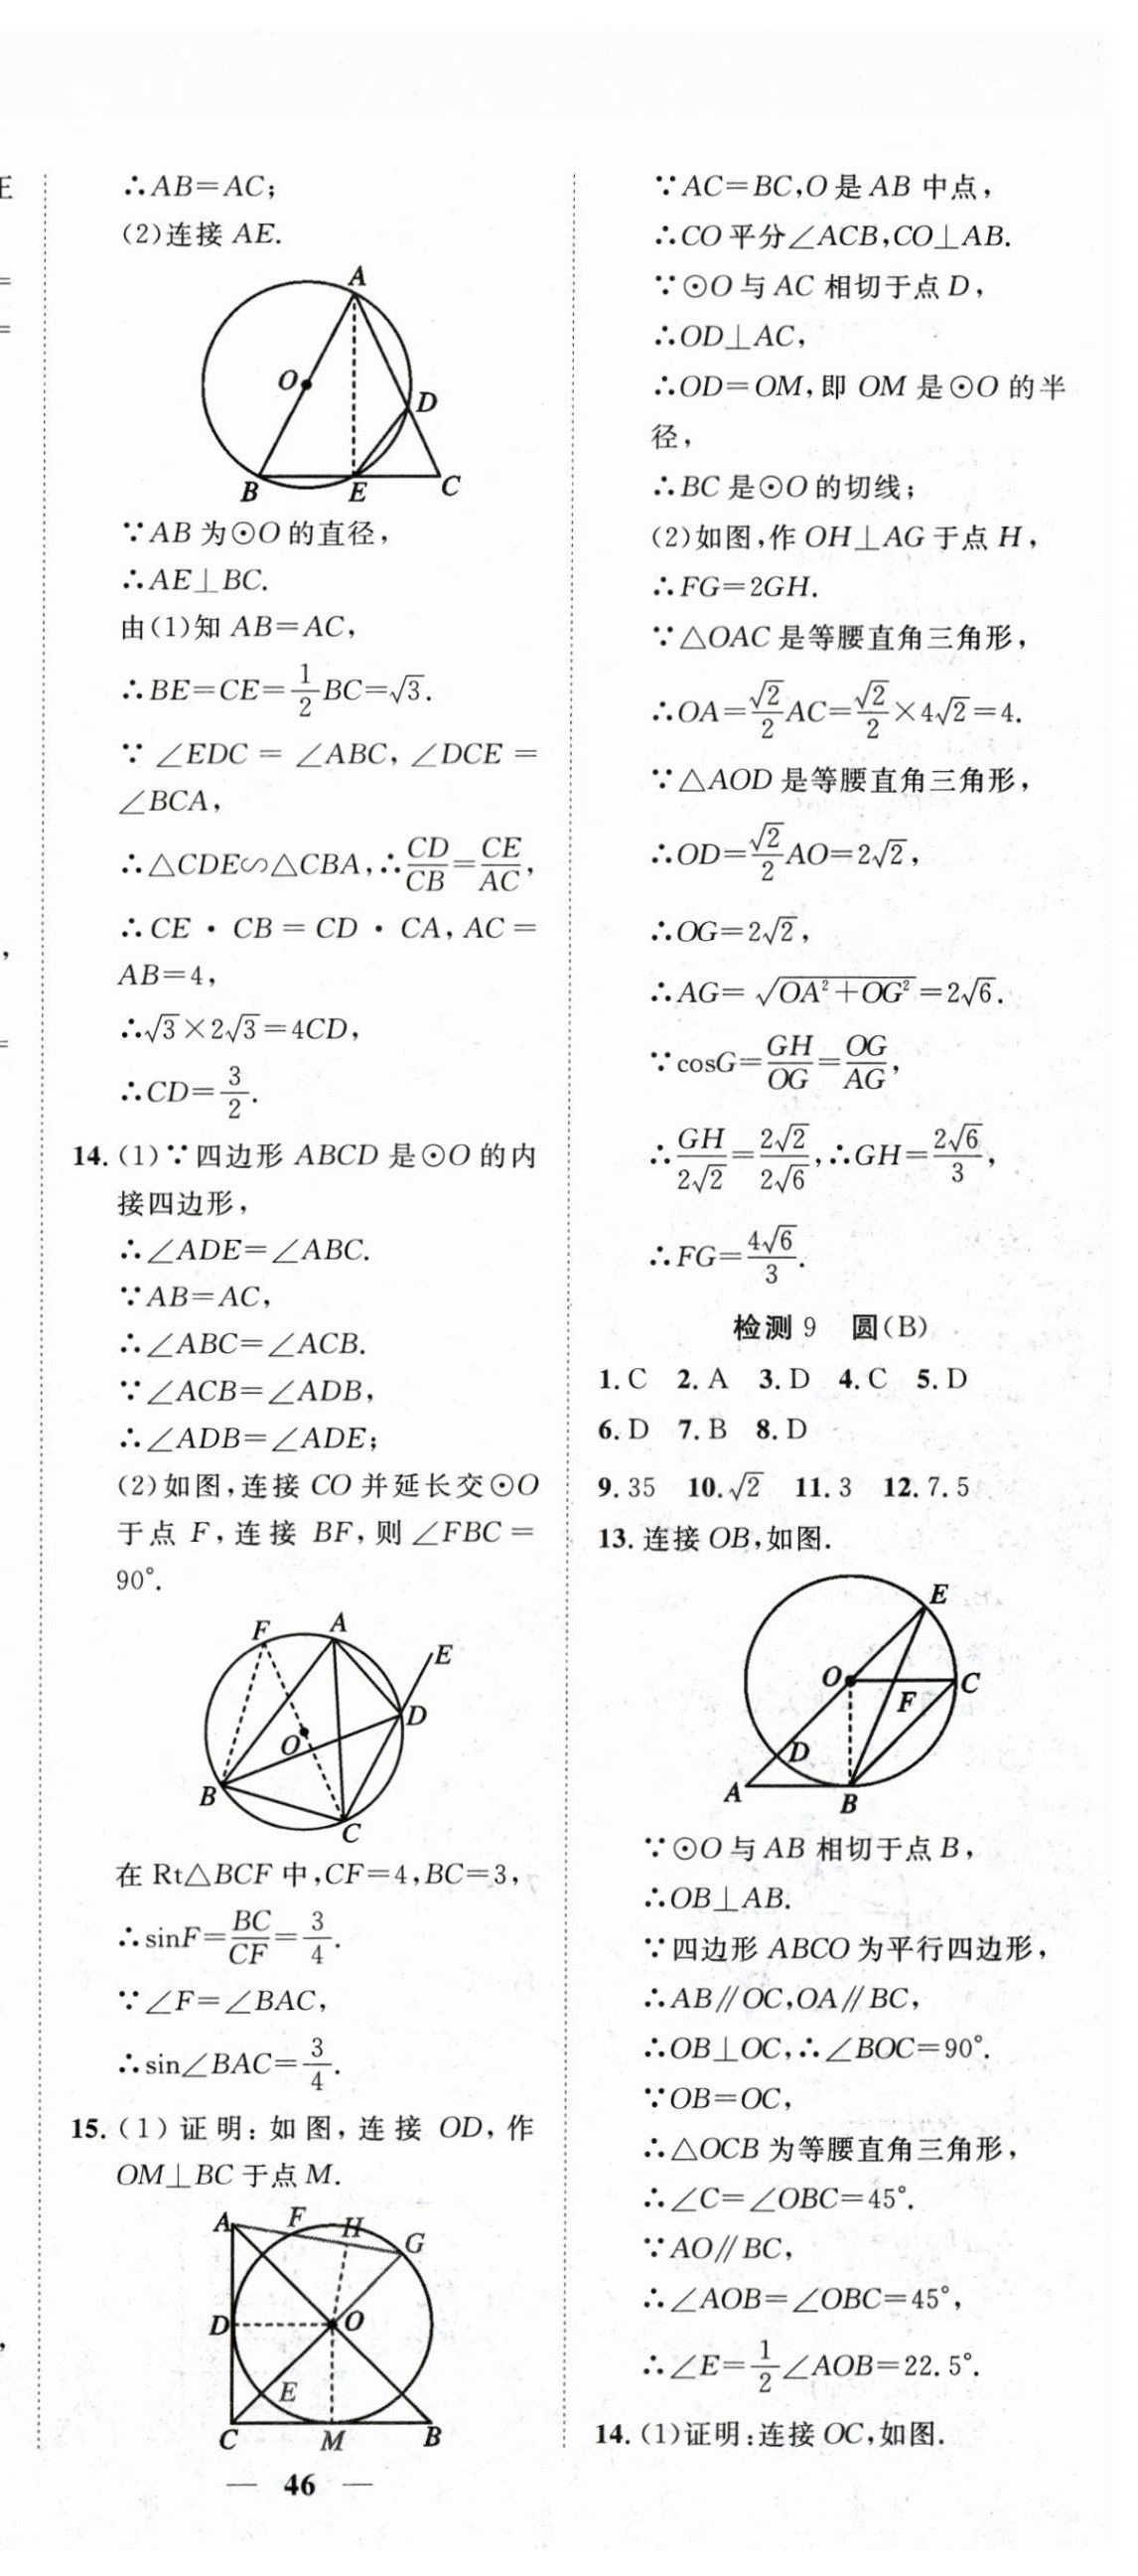 ∴AB=AC;
(2)连接 AE.
A
O
D
B
E
C
∵AB 为⊙O 的直径,
∴AE⊥BC.
由(1)知 AB=AC,
∴BE=CE=\frac{1}{2}BC=√3.
∵ ∠EDC = ∠ABC, ∠DCE =
∠BCA,
∴△CDE∽△CBA,∴\frac{CD}{CB}=\frac{CE}{AC},
∴CE · CB = CD · CA, AC =
AB=4,
∴√3×2√3=4CD,
∴CD=\frac{3}{2}.
14. (1)∵四边形 ABCD 是⊙O 的内
接四边形,
∴∠ADE=∠ABC.
∵AB=AC,
∴∠ABC=∠ACB.
∵∠ACB=∠ADB,
∴∠ADB=∠ADE;
(2)如图,连接 CO 并延长交⊙O
于点 F, 连接 BF, 则∠FBC =
90°.
F
A
E
D
O
B
C
在 Rt△BCF 中,CF=4,BC=3,
∴sinF=\frac{BC}{CF}=\frac{3}{4}.
∵∠F=∠BAC,
∴sin∠BAC=\frac{3}{4}.
15. (1) 证明: 如图, 连接 OD, 作
OM⊥BC 于点 M.
A
F
H
G
D
O
E
C
M
B
— 46 —
∵AC=BC,O 是 AB 中点,
∴CO 平分∠ACB,CO⊥AB.
∵⊙O 与 AC 相切于点 D,
∴OD⊥AC,
∴OD=OM,即 OM 是⊙O 的半
径,
∴BC 是⊙O 的切线;
(2)如图,作 OH⊥AG 于点 H,
∴FG=2GH.
∵△OAC 是等腰直角三角形,
∴OA=\frac{√2}{2}AC=\frac{√2}{2}×4√2=4.
∵△AOD 是等腰直角三角形,
∴OD=\frac{√2}{2}AO=2√2,
∴OG=2√2,
∴AG=√(OA²+OG²)=2√6.
∵cosG=\frac{GH}{OG}=\frac{OG}{AG},
∴\frac{GH}{2√2}=\frac{2√2}{2√6},∴GH=\frac{2√6}{3},
∴FG=\frac{4√6}{3}.
检测 9 圆(B)
1. C 2. A 3. D 4. C 5. D
6. D 7. B 8. D
9. 35 10. √2 11. 3 12. 7.5
13. 连接 OB,如图.
E
O
C
F
D
A
B
∵⊙O 与 AB 相切于点 B,
∴OB⊥AB.
∵四边形 ABCO 为平行四边形,
∴AB∥OC,OA∥BC,
∴OB⊥OC,∴∠BOC=90°.
∵OB=OC,
∴△OCB 为等腰直角三角形,
∴∠C=∠OBC=45°.
∵AO∥BC,
∴∠AOB=∠OBC=45°,
∴∠E=\frac{1}{2}∠AOB=22.5°.
14. (1)证明:连接 OC,如图.